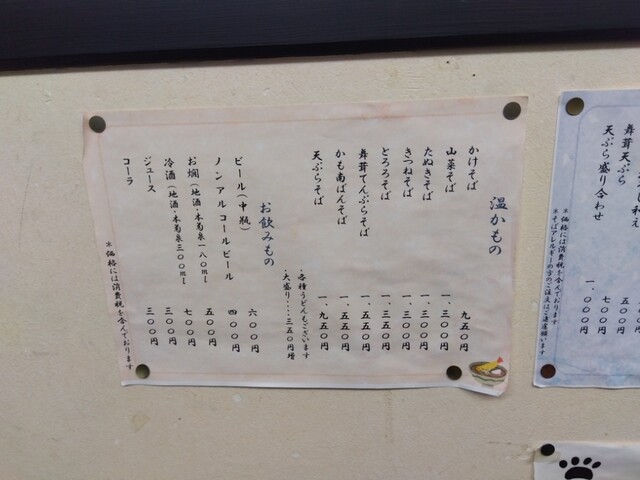 温かもの
かけそば 九五〇円
山菜そば 一、三〇〇円
たぬきそば 一、三〇〇円
きつねそば 一、三〇〇円
とろろそば 一、三五〇円
舞茸てんぷらそば 一、五五〇円
かも南ばんそば 一、五五〇円
天ぷらそば 一、九五〇円
・各種うどんもございます
・大盛り・・・・三五〇円増
お飲みもの
ビール（中瓶） 六〇〇円
ノンアルコールビール 四〇〇円
お燗（地酒・本菊泉一八〇ml） 五〇〇円
冷酒（地酒・本菊泉三〇〇ml） 七〇〇円
ジュース 三〇〇円
コーラ 三〇〇円
※価格には消費税を含んでおります
舞茸天ぷら 七〇〇円
天ぷら盛り合わせ 一、〇〇〇円
※価格には消費税を含んでおります
※そばアレルギーの方のご注文はご遠慮願います